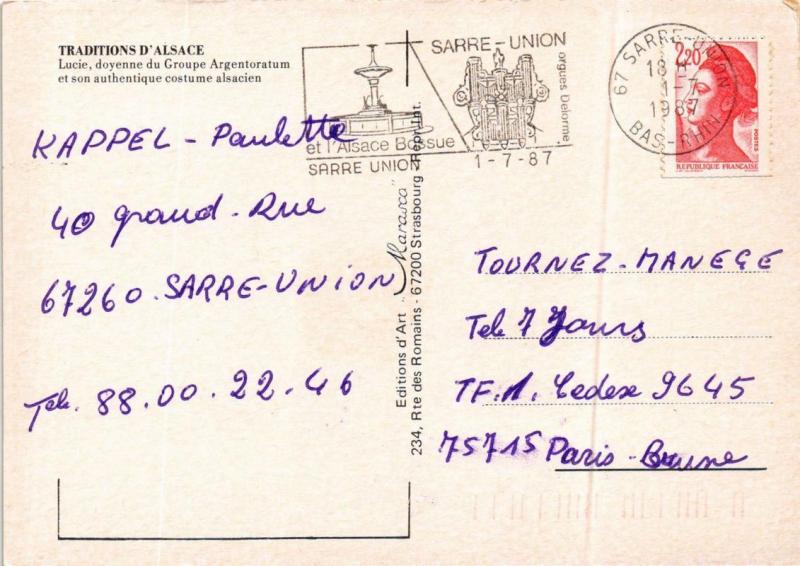 TRADITIONS D'ALSACE
Lucie, doyenne du Groupe Argentoratum
et son authentique costume alsacien
SARRE-UNION
orgues Delorme
et l'Alsace Bossue
SARRE UNION
1-7-87
67 SARRE-UNION
18 H
1-7
1987
BAS-RHIN
2,20
POSTES
REPUBLIQUE FRANÇAISE
KAPPEL - Paulette
40 grand-Rue
67260. SARRE-UNION
Tele. 88.00.22.46
Editions d'Art "Marasco"
234, Rte des Romains - 67200 Strasbourg - Repr. Int.
TOURNEZ-MANEGE
Tele 7 Jours
TF.1. Cedex 9645
75715 Paris-Brune